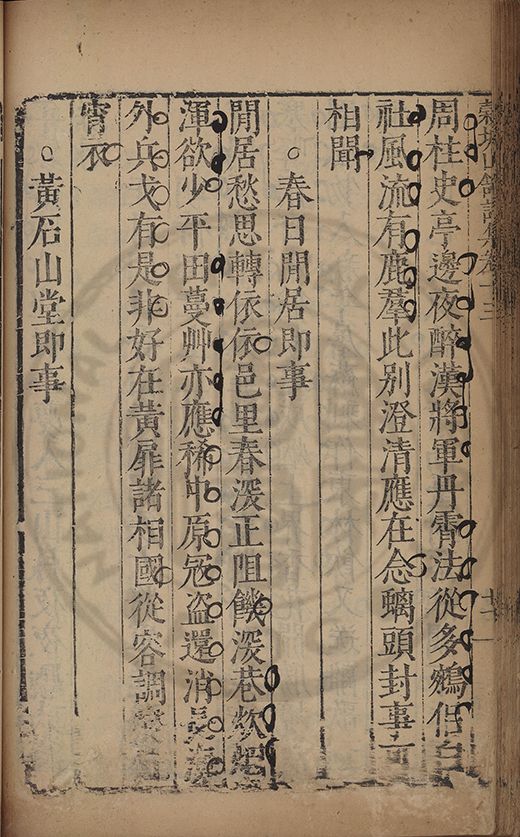 穀城山館詩集卷十三
周柱史亭邊夜醉漢將軍丹霄法從多鵷侶白
社風流有鹿羣此別澄清應在念螭頭封事一
相聞
○春日閒居即事
閒居愁思轉依依邑里春深正阻饑深巷炊煙
渾欲少平田蔓艸亦應稀中原冦盗還消長海
外兵戈有是非好在黃扉諸相國從容調燮
宵衣
○黃石山堂即事